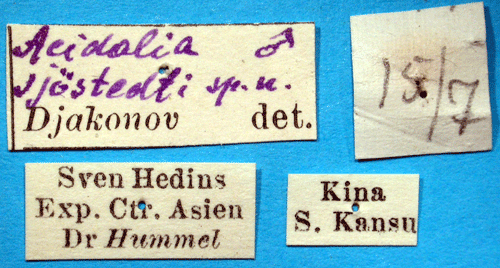 Acidalia ♂
sjöstedti sp. n.
Djakonov det.
15/7
Sven Hedins
Exp. Ctr. Asien
Dr Hummel
Kina
S. Kansu